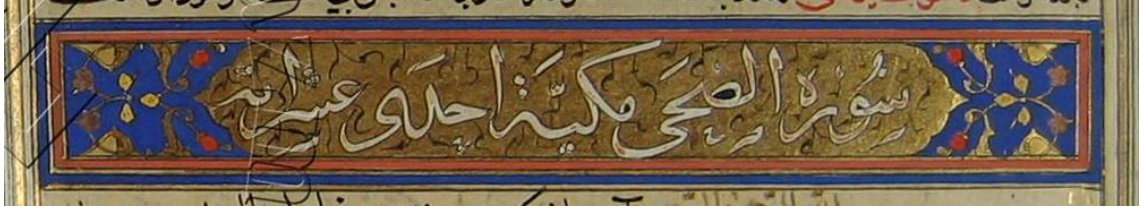 سورة الضحى مكية احدى عشر اية